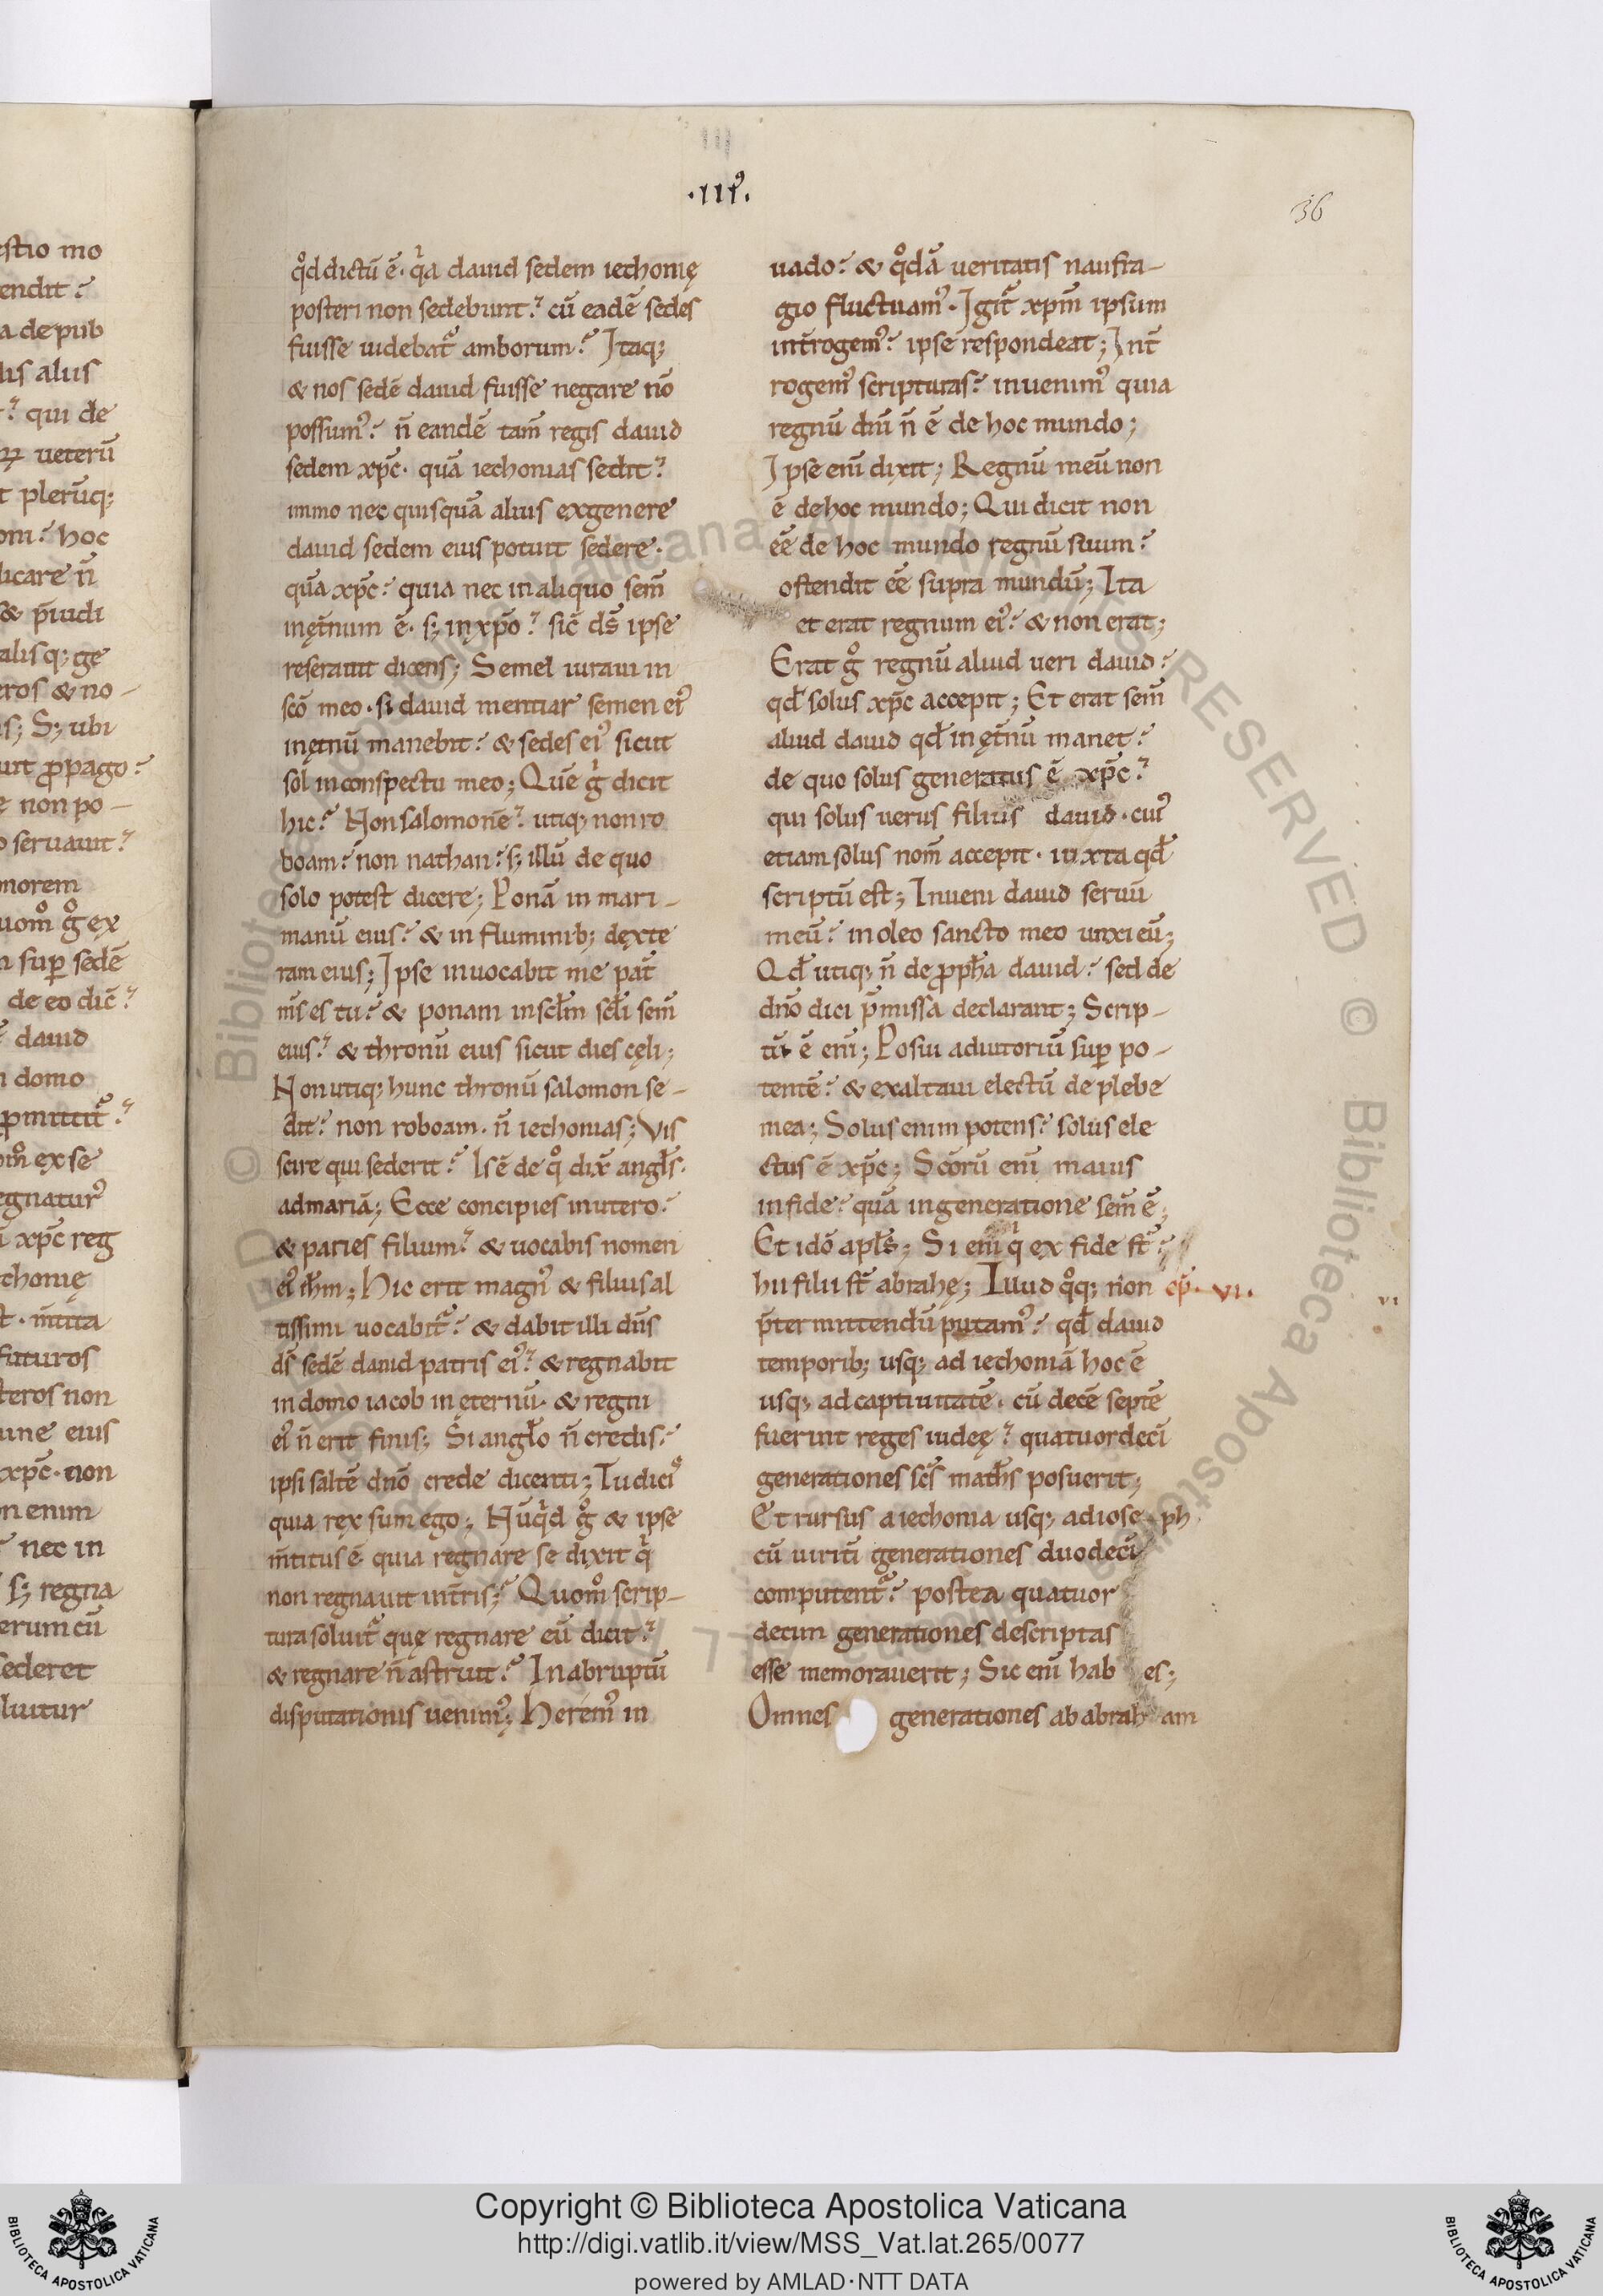 estio mo
endit?
a de pub
lis aliis
? qui de
ꝝ ueterū
t plerūq;
om? hoc
licare n̄
& p̄iudi
alisq; ge
eros & no-
s; S; ubi
uit ꝓpago?
ę non po-
o seruauit?
morem
uom̊ g̊ ex
n suꝑ sedē
de eo dic̄?
? dauid
n domo
ꝑmittit᷑?
om̊ ex se
egnatur᷒
ī xp̄c reg
chonię
t. m̄tita
futuros
teros non
une eius
xp̄c. non
n enim
? nec in
s; regna
erum cū
sederet
luitur
III
.III᷒.
36
q̊d dictū ē. q̓a dauid sedem iechonię
posteri non sedebunt? cū eadē sedes
fuisse uidebat᷑ amborum? Itaq;
& nos sedē dauid fuisse negare nō
possum᷒? n̄ eandē tam̄ regis dauid
sedem xp̄c. quā iechonias sedit?
immo nec quisquā alius ex genere
dauid sedem eius potuit sedere.
quā xp̄c? quia nec in aliquo sem̄
inęt̄num ē. s; in xp̄o? sic̄ ds̄ ipse
reserauit dicens; Semel iuraui in
scō meo. si dauid mentiar semen ei᷒
inęt̄nū manebit? & sedes ei᷒ sicut
sol in conspectu meo; Quē g̓ dicit
hic? Non salomonē? utiq; non ro
boam? non nathan? s; illū de quo
solo potest dicere; Ponā in mari-
manū eius? & in fluminib; dęxte
ram eius; Ipse inuocabit me pat̄
m̄s es tu? & ponam in sclm̄ scl̄i sem̄
eius? & thronū eius sicut dies cęli;
Non utiq; hunc thronū salomon se-
dit? non roboam. n̄ iechonias; Vis
scire qui sederit? Is ē de q̊ dix̄ angl̄s.
ad mariā; Ecce concipies in utero?
& paries filium? & uocabis nomen
ei᷒ ihm̄; Hic erit magn᷒ & filius al
tissimi uocabit᷑? & dabit illi dn̄s
ds̄ sedē dauid patris ei᷒? & regnabit
in domo iacob in ęternū. & regni
ei᷒ n̄ erit finis; Si angl̄o n̄ credis?
ipsi saltē dn̄o crede dicenti; Tu dici᷒
quia rex sum ego; Nūq̓d g̊ & ipse
m̄titus ē quia regnare se dixit q̓
non regnauit int̄ris;? Quom̊ scrip-
tura soluit᷑ quę regnare eū dicit?
& regnare n̄ astruit? In abruptū
disputationis uenim᷒; Herem᷒ in
uado? & q̊dā ueritatis naufra-
gio fluctuam᷒. Igit᷑ xpm̄ ipsum
int̄rogem᷒? ipse respondeat; Int̄
rogem᷒ scripturas? inuenim᷒ quia
regnū dn̄i n̄ ē de hoc mundo;
Ipse enī dixit; Regnū meū non
ē de hoc mundo; Qui dicit non
eē de hoc mundo regnū suum?
ostendit eē supra mundū; Ita
et erat regnum ei᷒? & non erat;
Erat g̊ regnū aliud ueri dauid?
qd̄ solus xp̄c accepit; Et erat sem̄
aliud dauid qd̄ inęt̄nū manet?
de quo solus generatus ē xp̄c?
qui solus uerus filius dauid. cui᷒
etiam solus nom̄ accepit. iuxta qd̄
scriptū est; Inueni dauid seruū
meū? in oleo sancto meo unxi eū;
Qd̄ utiq; n̄ de ꝓph̄a dauid? sed de
dn̄o dici p̄missa declarant; Scrip-
tū ē enī; Posui adiutoriū suꝑ po-
tentē? & exaltaui electū de plebe
mea; Solus enim potens? solus ele
ctus ē xp̄c; Scōrū enī maius
in fide? quā in generatione sem̄ ē;
Et idō apls̄; Si enī q̓ ex fide st̄?
hii filii st̄ abrahę; Illud q̊q; non cp̄. VI.
p̄termittendū putam᷒? qd̄ dauid
temporib; usq; ad iechoniā hoc ē
usq; ad captiuitatē. cū decē septē
fuerint reges iudeę? quatuordecī
generationes sc̄s math̄s posuerit;
Et rursus a iechonia usq; ad iose ph
cū uiritī generationes duodecī
computent᷑? postea quatuor
decim generationes descriptas
esse memorauerit; Sic enī hab es;
Omnes generationes ab abrah am
VI
Copyright © Biblioteca Apostolica Vaticana
http://digi.vatlib.it/view/MSS_Vat.lat.265/0077
powered by AMLAD·NTT DATA
BIBLIOTECA APOSTOLICA VATICANA
BIBLIOTECA APOSTOLICA VATICANA